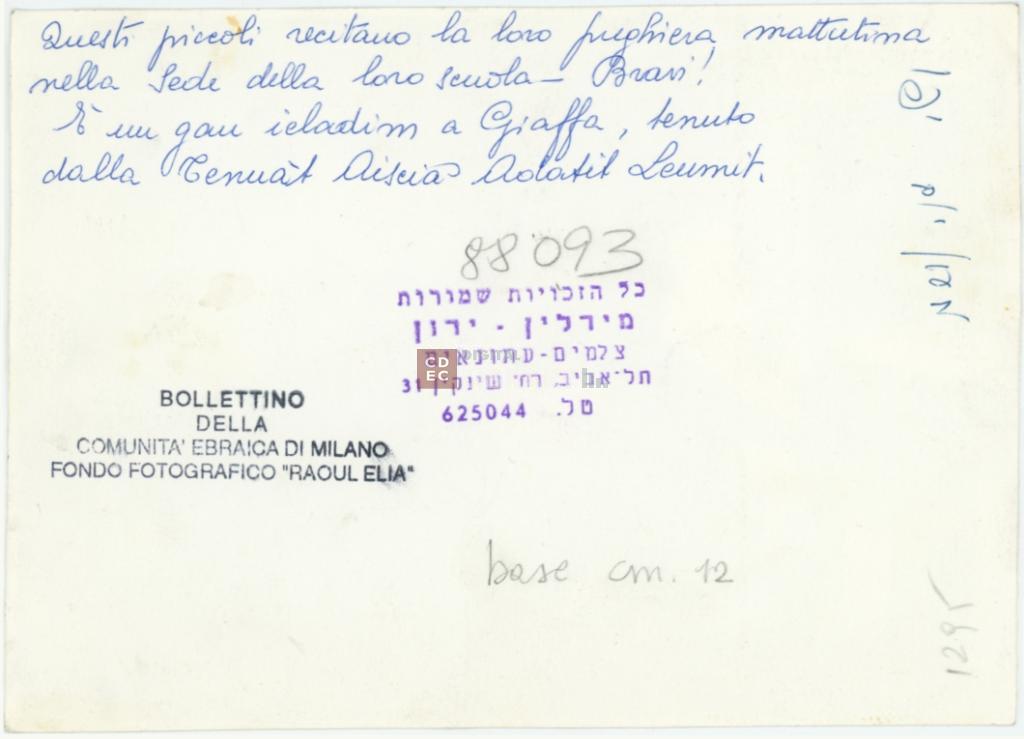 Questi piccoli recitano la loro preghiera mattutina
nella Sede della loro scuola – Bravi!
È un gan ieladim a Giaffa, tenuto
dalla Tenuàt Aiscià Adatit Leumit.
88093
כל הזכויות שמורות
מירלין - ירון
צלמים-עתונאים
תל-אביב, רח׳ שינקין 31
טל. 625044
CDEC DIGITAL
BOLLETTINO
DELLA
COMUNITA' EBRAICA DI MILANO
FONDO FOTOGRAFICO "RAOUL ELIA"
base cm. 12
1295